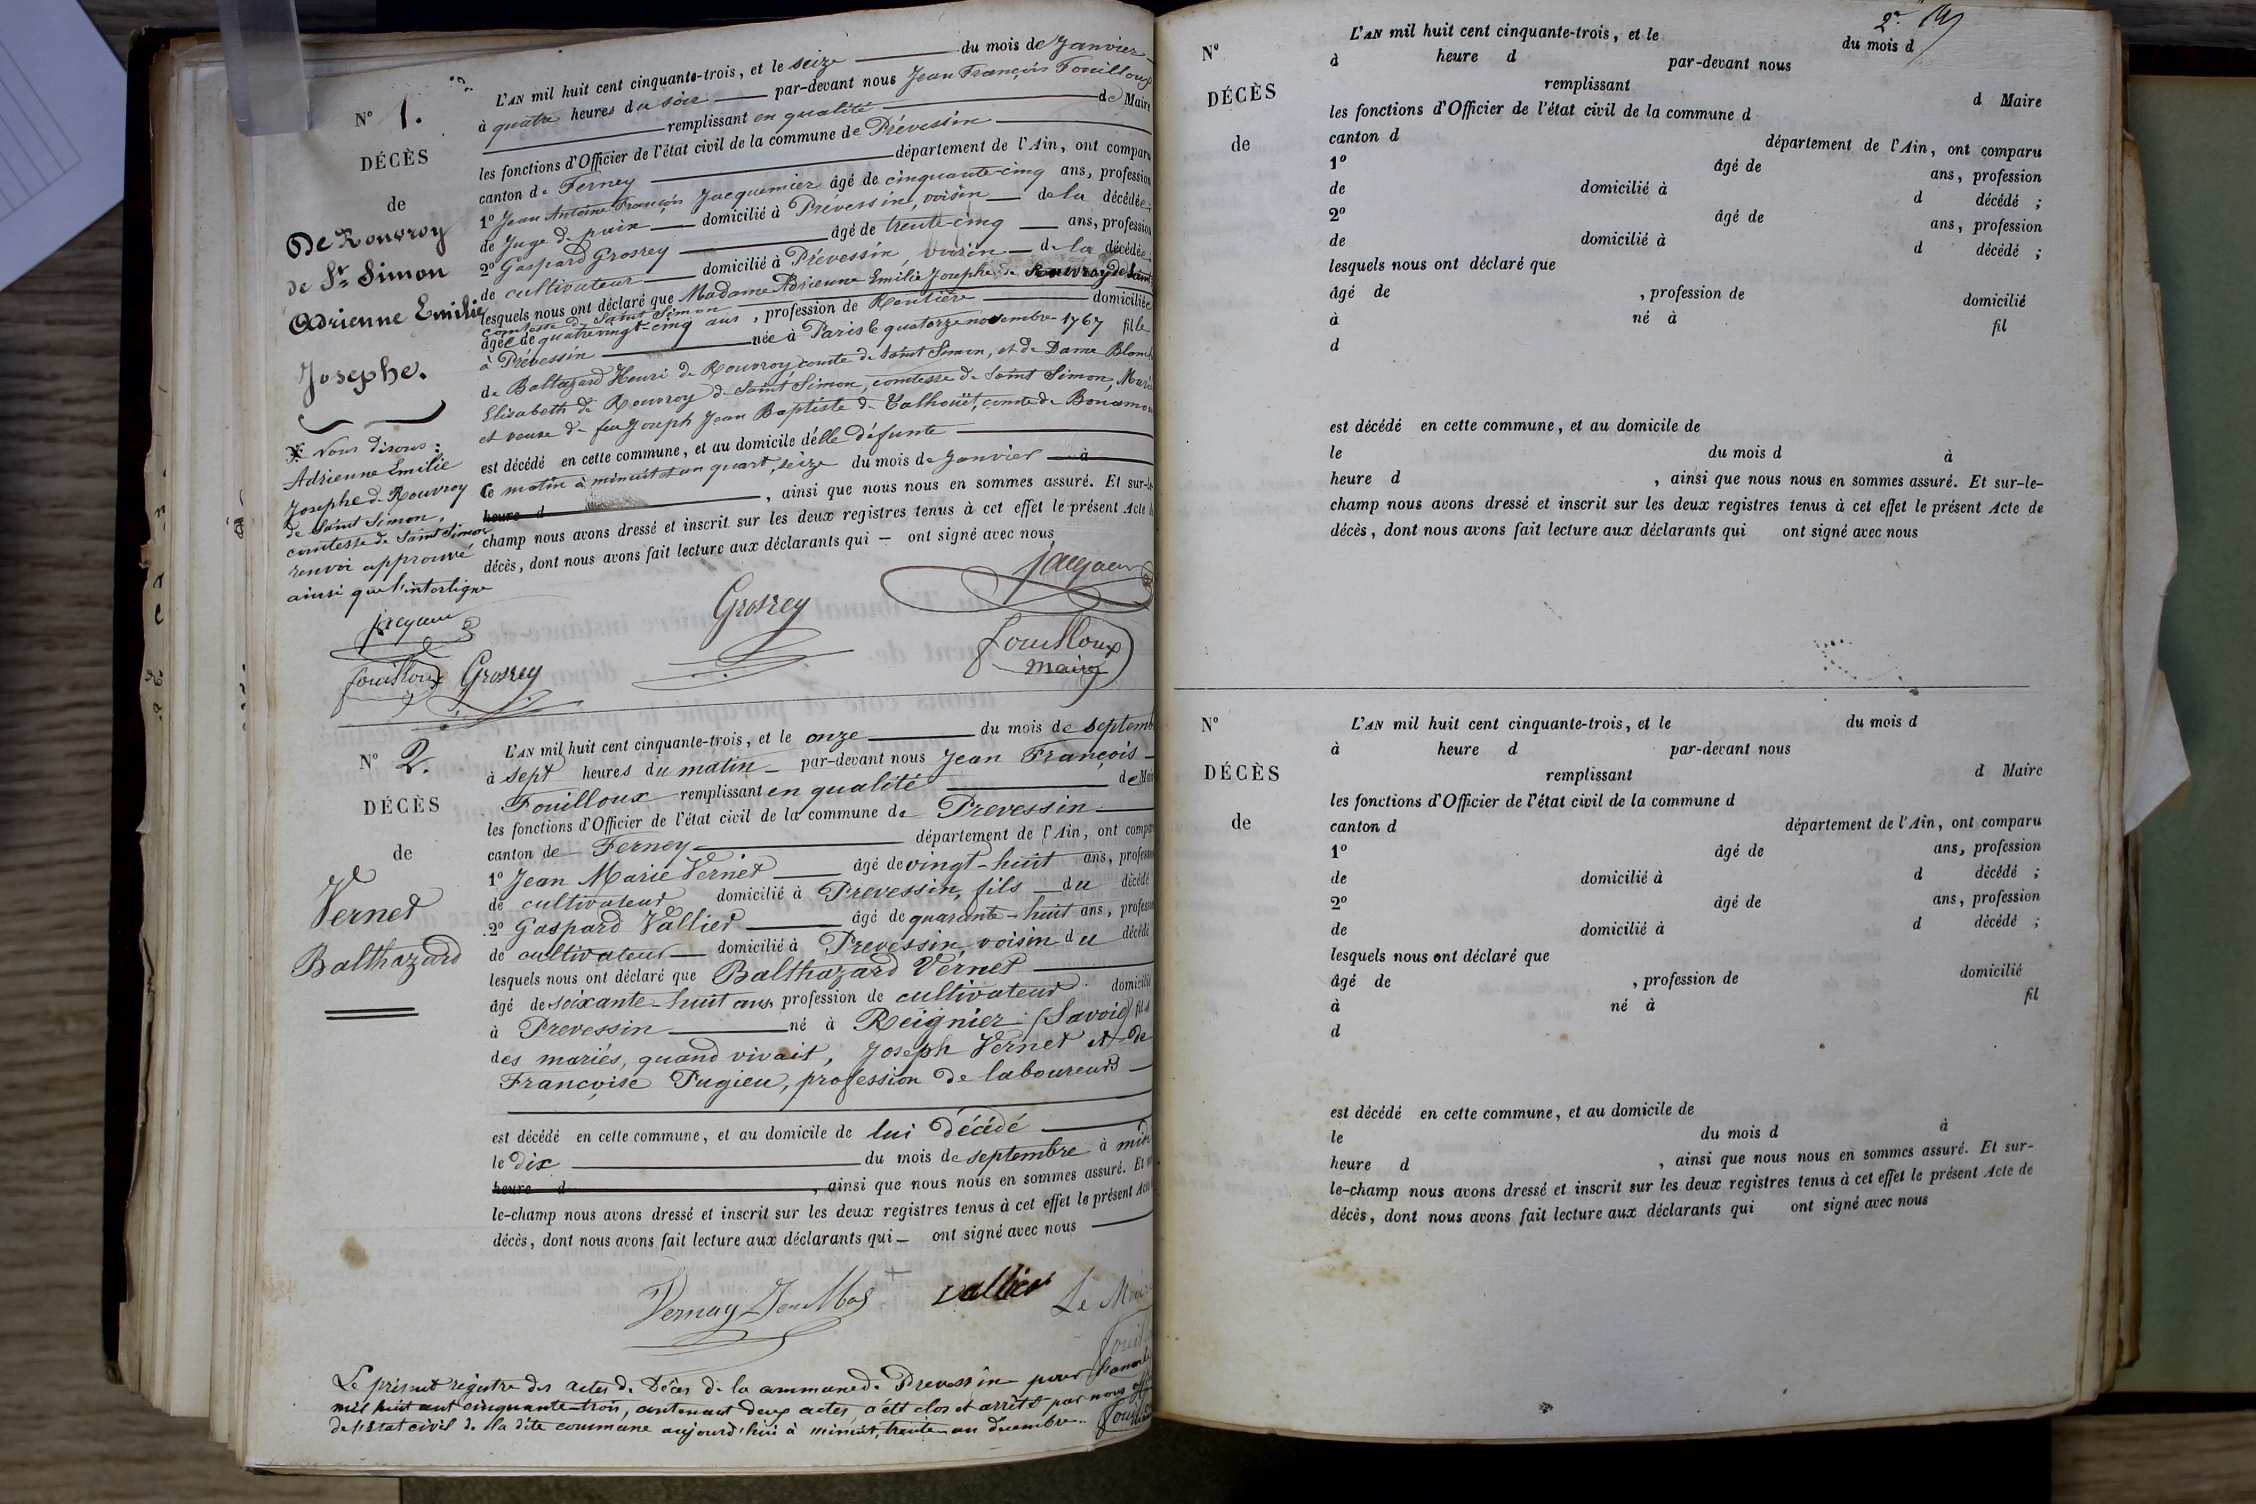 N° 1.
DÉCÈS
de
De Rouvroy
de St Simon
Adrienne Emilie
Josephe.
Nous disons :
Adrienne Emilie
Josephe de Rouvroy
de Saint Simon,
comtesse de Saint Simon
renvoi approuvé
ainsi que l'interligne
fouilloux Grosrey
L'AN mil huit cent cinquante-trois, et le seize du mois de Janvier
à quatre heures du soir par-devant nous Jean François Fouilloux
remplissant en qualité de Maire
les fonctions d'Officier de l'état civil de la commune de Prévessin
canton de Ferney département de l'Ain, ont comparu
1° Jean Antoine François Jacquemier âgé de cinquante-cinq ans, profession
de Juge de paix domicilié à Prévessin, voisin de la décédée;
2° Gaspard Grosrey âgé de trente-cinq ans, profession
de cultivateur domicilié à Prévessin, voisin de la décédée;
lesquels nous ont déclaré que Madame Adrienne Emilie Josephe de Rouvroy de Saint
comtesse de Saint Simon
âgée de quatrevingt-cinq ans, profession de Rentière domiciliée
à Prévessin née à Paris le quatorze novembre 1767 fille
de Baltazard Henri de Rouvroy, comte de Saint Simon, et de Dame Blanche
Elisabeth de Rouvroy de Saint Simon, comtesse de Saint Simon, Mariés
et veuve de feu Joseph Jean Baptiste de Talhouët, comte de Bonamour
est décédé en cette commune, et au domicile d'elle défunte
Ce matin à minuit et un quart, seize du mois de Janvier à
heure d , ainsi que nous nous en sommes assuré. Et sur-le-
champ nous avons dressé et inscrit sur les deux registres tenus à cet effet le présent Acte de
décès, dont nous avons fait lecture aux déclarants qui — ont signé avec nous
Grosrey
fouilloux
maire
N° 2.
DÉCÈS
de
Vernet
Balthazard
L'AN mil huit cent cinquante-trois, et le onze du mois de septembre
à sept heures du matin par-devant nous Jean François
Fouilloux remplissant en qualité de Maire
les fonctions d'Officier de l'état civil de la commune de Prevessin
canton de Ferney département de l'Ain, ont comparu
1° Jean Marie Vernet âgé de vingt-huit ans, profession
de cultivateur domicilié à Prevessin, fils du décédé
2° Gaspard Vallier âgé de quarante-huit ans, profession
de cultivateur domicilié à Prevessin voisin du décédé
lesquels nous ont déclaré que Balthazard Vernet
âgé de soixante-huit ans, profession de cultivateur domicilié
à Prevessin né à Reignier (Savoie) fils
des mariés, quand vivait, Joseph Vernet et de
Françoise Pugieu, profession de laboureurs
est décédé en cette commune, et au domicile de lui décédé
le dix du mois de septembre à midi
heure d , ainsi que nous nous en sommes assuré. Et sur
le-champ nous avons dressé et inscrit sur les deux registres tenus à cet effet le présent Acte
décès, dont nous avons fait lecture aux déclarants qui — ont signé avec nous
Vallier Le Maire
Le présent registre des actes de Décès de la commune de Prevessin pour l'année
mil huit cent cinquante-trois, contenant deux actes, a été clos et arrêté par nous
de l'état civil de la dite commune aujourd'hui à minuit, trente un décembre
N°
DÉCÈS
de
L'AN mil huit cent cinquante-trois, et le du mois d
à heure d par-devant nous
remplissant d Maire
les fonctions d'Officier de l'état civil de la commune d
canton d département de l'Ain, ont comparu
1° âgé de ans, profession
de domicilié à d décédé ;
2° âgé de ans, profession
de domicilié à d décédé ;
lesquels nous ont déclaré que
âgé de , profession de domicilié
à né à fil
d
est décédé en cette commune, et au domicile de
le du mois d à
heure d , ainsi que nous nous en sommes assuré. Et sur-le-
champ nous avons dressé et inscrit sur les deux registres tenus à cet effet le présent Acte de
décès, dont nous avons fait lecture aux déclarants qui ont signé avec nous
N°
DÉCÈS
de
L'AN mil huit cent cinquante-trois, et le du mois d
à heure d par-devant nous
remplissant d Maire
les fonctions d'Officier de l'état civil de la commune d
canton d département de l'Ain, ont comparu
1° âgé de ans, profession
de domicilié à d décédé ;
2° âgé de ans, profession
de domicilié à d décédé ;
lesquels nous ont déclaré que
âgé de , profession de domicilié
à né à fil
d
est décédé en cette commune, et au domicile de
le du mois d à
heure d , ainsi que nous nous en sommes assuré. Et sur-
le-champ nous avons dressé et inscrit sur les deux registres tenus à cet effet le présent Acte de
décès, dont nous avons fait lecture aux déclarants qui ont signé avec nous